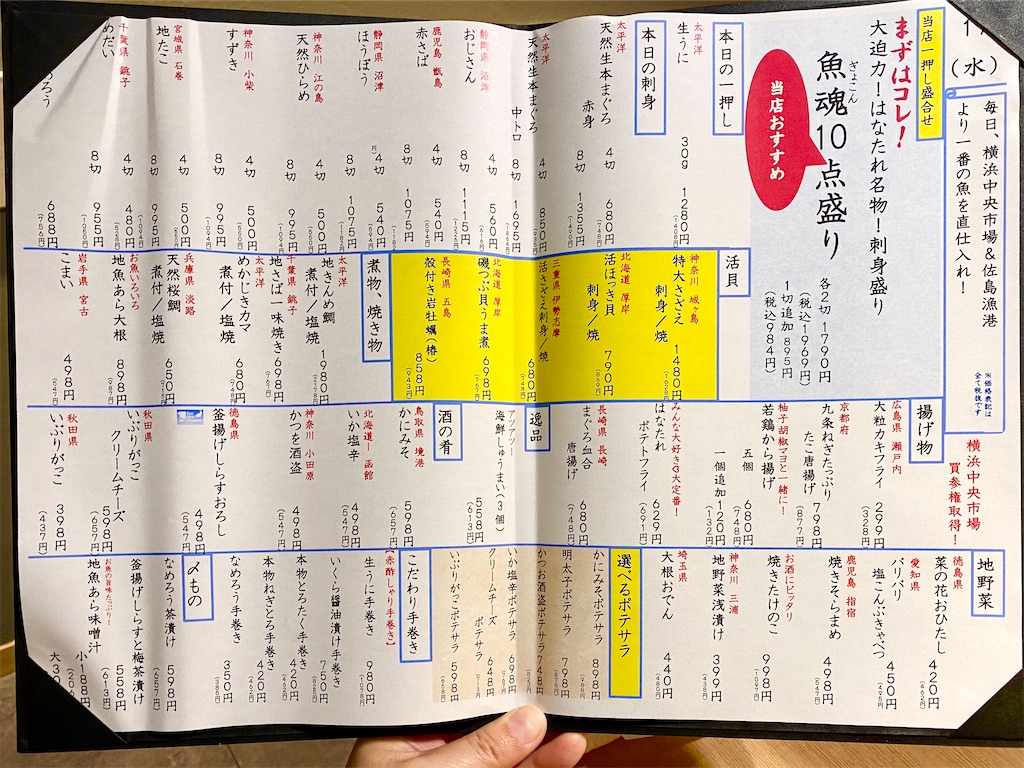 (水)
毎日、横浜中央市場&佐島漁港
より一番の魚を直仕入れ!
※価格表記は
全て税抜です
横浜中央市場
買参権取得!
当店一押し盛合せ
まずはコレ!
大迫力!はなたれ名物!刺身盛り
ぎょこん
魚魂10点盛り
各2切 1790円
(税込1969円)
1切追加 895円
(税込984円)
当店おすすめ
本日の一押し
太平洋
生うに 30g 1280円
本日の刺身
太平洋
天然生本まぐろ 赤身 4切 680円
8切 1355円
太平洋
天然生本まぐろ 中トロ 4切 850円
8切 1695円
静岡県 沼津
おじさん 4切 560円
8切 1115円
鹿児島 甑島
赤さば 4切 540円
8切 1075円
静岡県 沼津
ほうぼう 4切 540円
8切 1075円
神奈川 江の島
天然ひらめ 4切 500円
8切 995円
神奈川 小柴
すずき 4切 500円
8切 995円
宮城県 石巻
地たこ 4切 500円
8切 995円
千葉県 銚子
めだい 4切 480円
8切 955円
688円
活貝
神奈川 城ヶ島
特大さざえ 刺身/焼 1480円
北海道 厚岸
活ほっき貝 刺身/焼 790円
三重県 伊勢志摩
活さざえ刺身/焼 680円
北海道 厚岸
磯つぶ貝うま煮 698円
長崎県 五島
殻付き岩牡蠣(椿) 858円
煮物、焼き物
太平洋
地きんめ鯛 煮付/塩焼 1980円
千葉県 銚子
地さば一味焼き 698円
太平洋
めかじきカマ 煮付/塩焼 680円
兵庫県 淡路
天然桜鯛 煮付/塩焼 650円
お魚いろいろ
地魚あら大根 898円
岩手県 宮古
こまい 498円
揚げ物
広島県 瀬戸内
大粒カキフライ 299円
(328円)
京都府
九条ねぎたっぷり
たこ唐揚げ 798円
(877円)
柚子胡椒マヨと一緒に!
若鶏から揚げ
五個 680円
(748円)
一個追加 120円
(132円)
みんな大好き♡大定番!
はなたれ
ポテトフライ 629円
(691円)
長崎県 長崎
まぐろ血合 唐揚げ 680円
(748円)
逸品
アツアツ!
海鮮しゅうまい(3個) 558円
(613円)
酒の肴
鳥取県 境港
かにみそ 598円
(657円)
北海道 函館
いか塩辛 498円
(547円)
神奈川 小田原
かつを酒盗 498円
(547円)
徳島県
釜揚げしらすおろし 498円
(547円)
秋田県
いぶりがっこ
クリームチーズ 598円
(657円)
秋田県
いぶりがっこ 398円
(437円)
地野菜
徳島県
菜の花おひたし 420円
愛知県
パリパリ
塩こんぶきゃべつ 450円
鹿児島 指宿
焼きそらまめ 498円
(547円)
お酒にピッタリ
焼きたけのこ 998円
神奈川 三浦
地野菜浅漬け 399円
埼玉県
大根おでん 440円
選べるポテサラ
かにみそポテサラ 898円
明太子ポテサラ 798円
かつお酒盗ポテサラ 748円
いか塩辛ポテサラ 698円
クリームチーズ
ポテサラ 648円
いぶりがっこポテサラ 598円
こだわり手巻き
【赤酢しゃり手巻き】
生うに手巻き 980円
いくら醤油漬け手巻き 750円
本物とろたく手巻き 420円
本物ねぎとろ手巻き 420円
なめろう手巻き 350円
〆もの
なめろう茶漬け 598円
釜揚げしらすと梅茶漬け 558円
(613円)
お魚の旨味たっぷり!
地魚あら味噌汁
小 188円